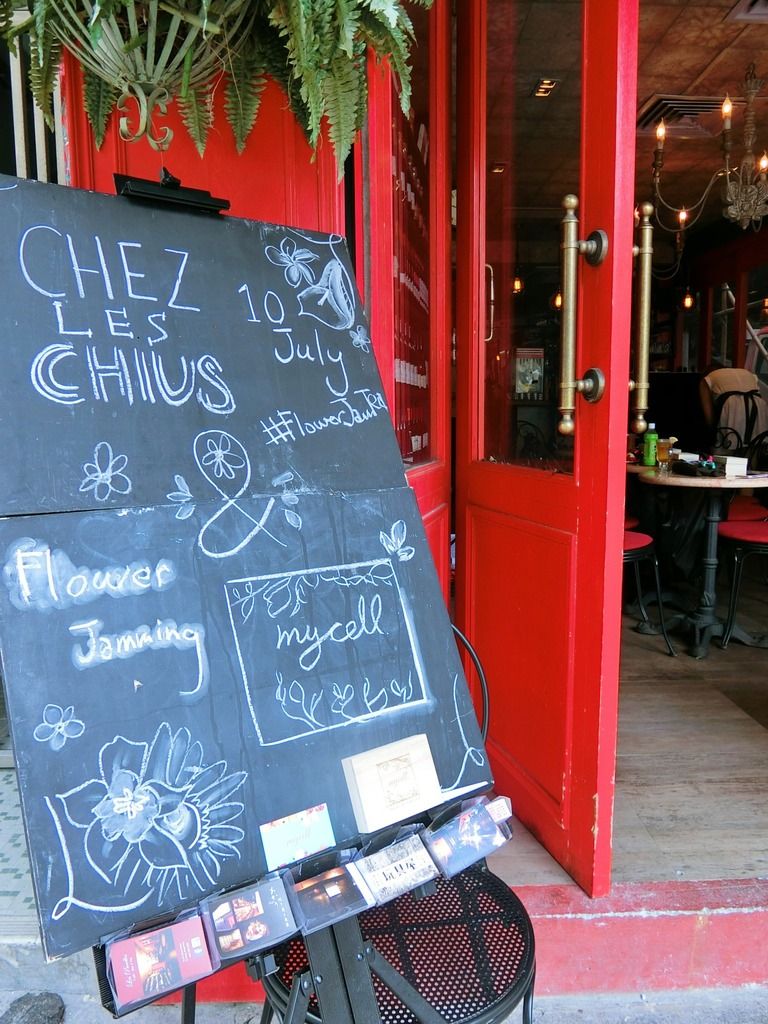 CHEZ
LES
CHIUS
10
July
#FlowerJamTea
&
Flower
Jamming
mycell
mycell